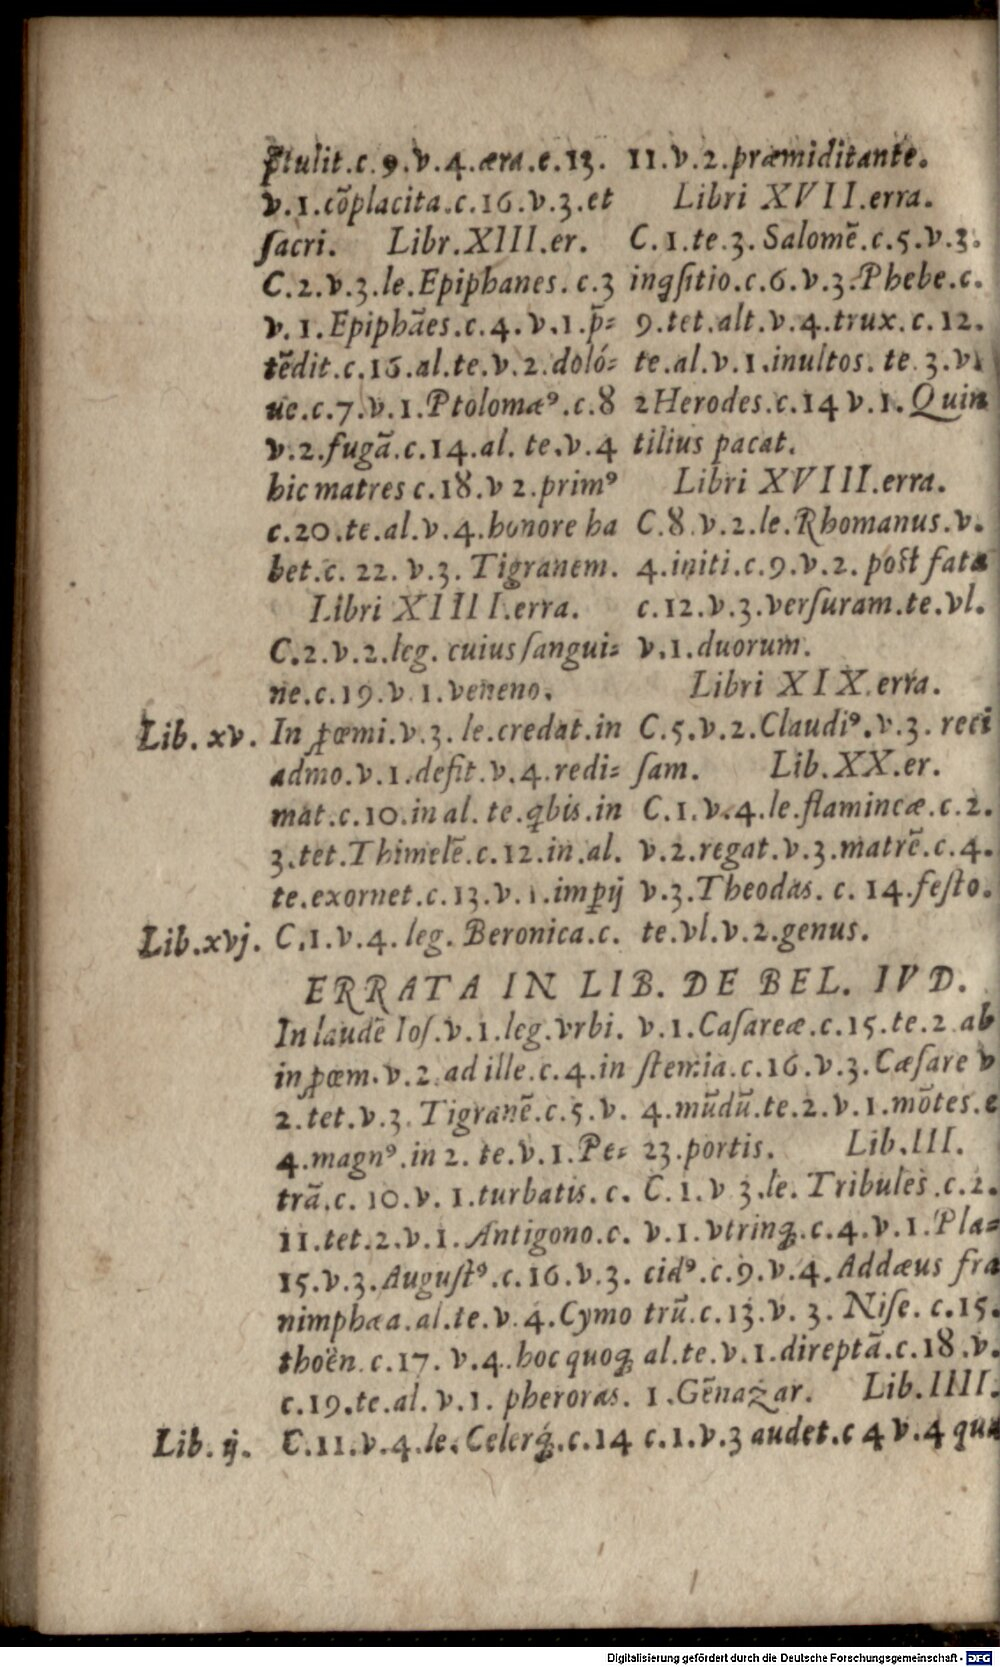 ꝑtulit.c.9.v.4.æra.e.13.
v.1.cõplacita.c.16.v.3.et
ſacri. Libr.XIII.er.
C.2.v.3.le.Epiphanes. c.3
v.1.Epiphães.c.4.v.1.p̃⸗
tẽdit.c.16.al.te.v.2.doló⸗
ue.c.7.v.1.Ptolomæꝰ.c.8
v.2.fugã.c.14.al. te.v.4
hic matres c.18.v 2.primꝰ
c.20.te.al.v.4.honore ha
bet.c. 22. v.3. Tigranem.
Libri XIIII.erra.
C.2.v.2.leg. cuius ſangui⸗
ne.c.19.v.1.veneno.
Lib. xv. In ꝓœmi.v.3. le.credat.in
admo.v.1.deſit.v.4.redi⸗
mat.c.10.in al. te.ꝗbis.in
3.tet.Thimelẽ.c.12.in.al.
te.exornet.c.13.v.1.impꝑij
Lib.xvj. C.1.v.4. leg. Beronica.c.
11.v.2.præmiditante.
Libri XVII.erra.
C.1.te.3. Salomẽ.c.5.v.3.
inꝗſitio.c.6.v.3.Phebe.c.
9.tet.alt.v.4.trux.c.12.
te.al.v.1.inultos. te.3.v.
2 Herodes.c.14 v.1. Quin
tilius pacat.
Libri XVIII.erra.
C.8.v.2.le.Rhomanus.v.
4.initi.c.9.v.2. poſt fata
c.12.v.3.verſuram.te.vl.
v.1.duorum.
Libri XIX.erra.
C.5.v.2.Claudiꝰ.v.3. reci
ſam. Lib.XX.er.
C.1.v.4.le.flamincæ.c.2.
v.2.regat.v.3.matrẽ.c.4.
v.3.Theodas. c. 14.feſto.
te.vl.v.2.genus.
ERRATA IN LIB. DE BEL. IVD.
In laudẽ Ioſ.v.1.leg.vrbi.
in ꝓœm.v.2.ad ille.c.4.in
2.tet.v.3.Tigranẽ.c.5.v.
4.magnꝰ.in 2. te.v.1.Pe⸗
trã.c. 10.v. 1.turbatis. c.
11.tet.2.v.1.Antigono.c.
15.v.3.Auguſtꝰ.c.16.v.3.
nimphæa.al.te.v.4.Cymo
thoën.c.17. v.4.hoc quoꝗ
c.19.te.al. v.1. pheroras.
Lib. ij. C.11.v.4.le.Celerꝗ́.c.14
v.1.Caſareæ.c.15.te.2.ab
ſtemia.c.16.v.3.Cæſare v
4.mũdũ.te.2.v.1.mõtes.c
23.portis. Lib.III.
C.1.v 3.le. Tribules.c.2.
v.1.vtrinꝗ.c.4.v.1.Pla⸗
cidꝰ.c.9.v.4.Addæus fra
trũ.c.13.v. 3. Niſe. c.15.
al.te.v.1.direptã.c.18.v.
1.Gẽnazar. Lib.IIII.
c.1.v.3 audet.c 4 v.4 qua
Digitalisierung gefördert durch die Deutsche Forschungsgemeinschaft - DFG